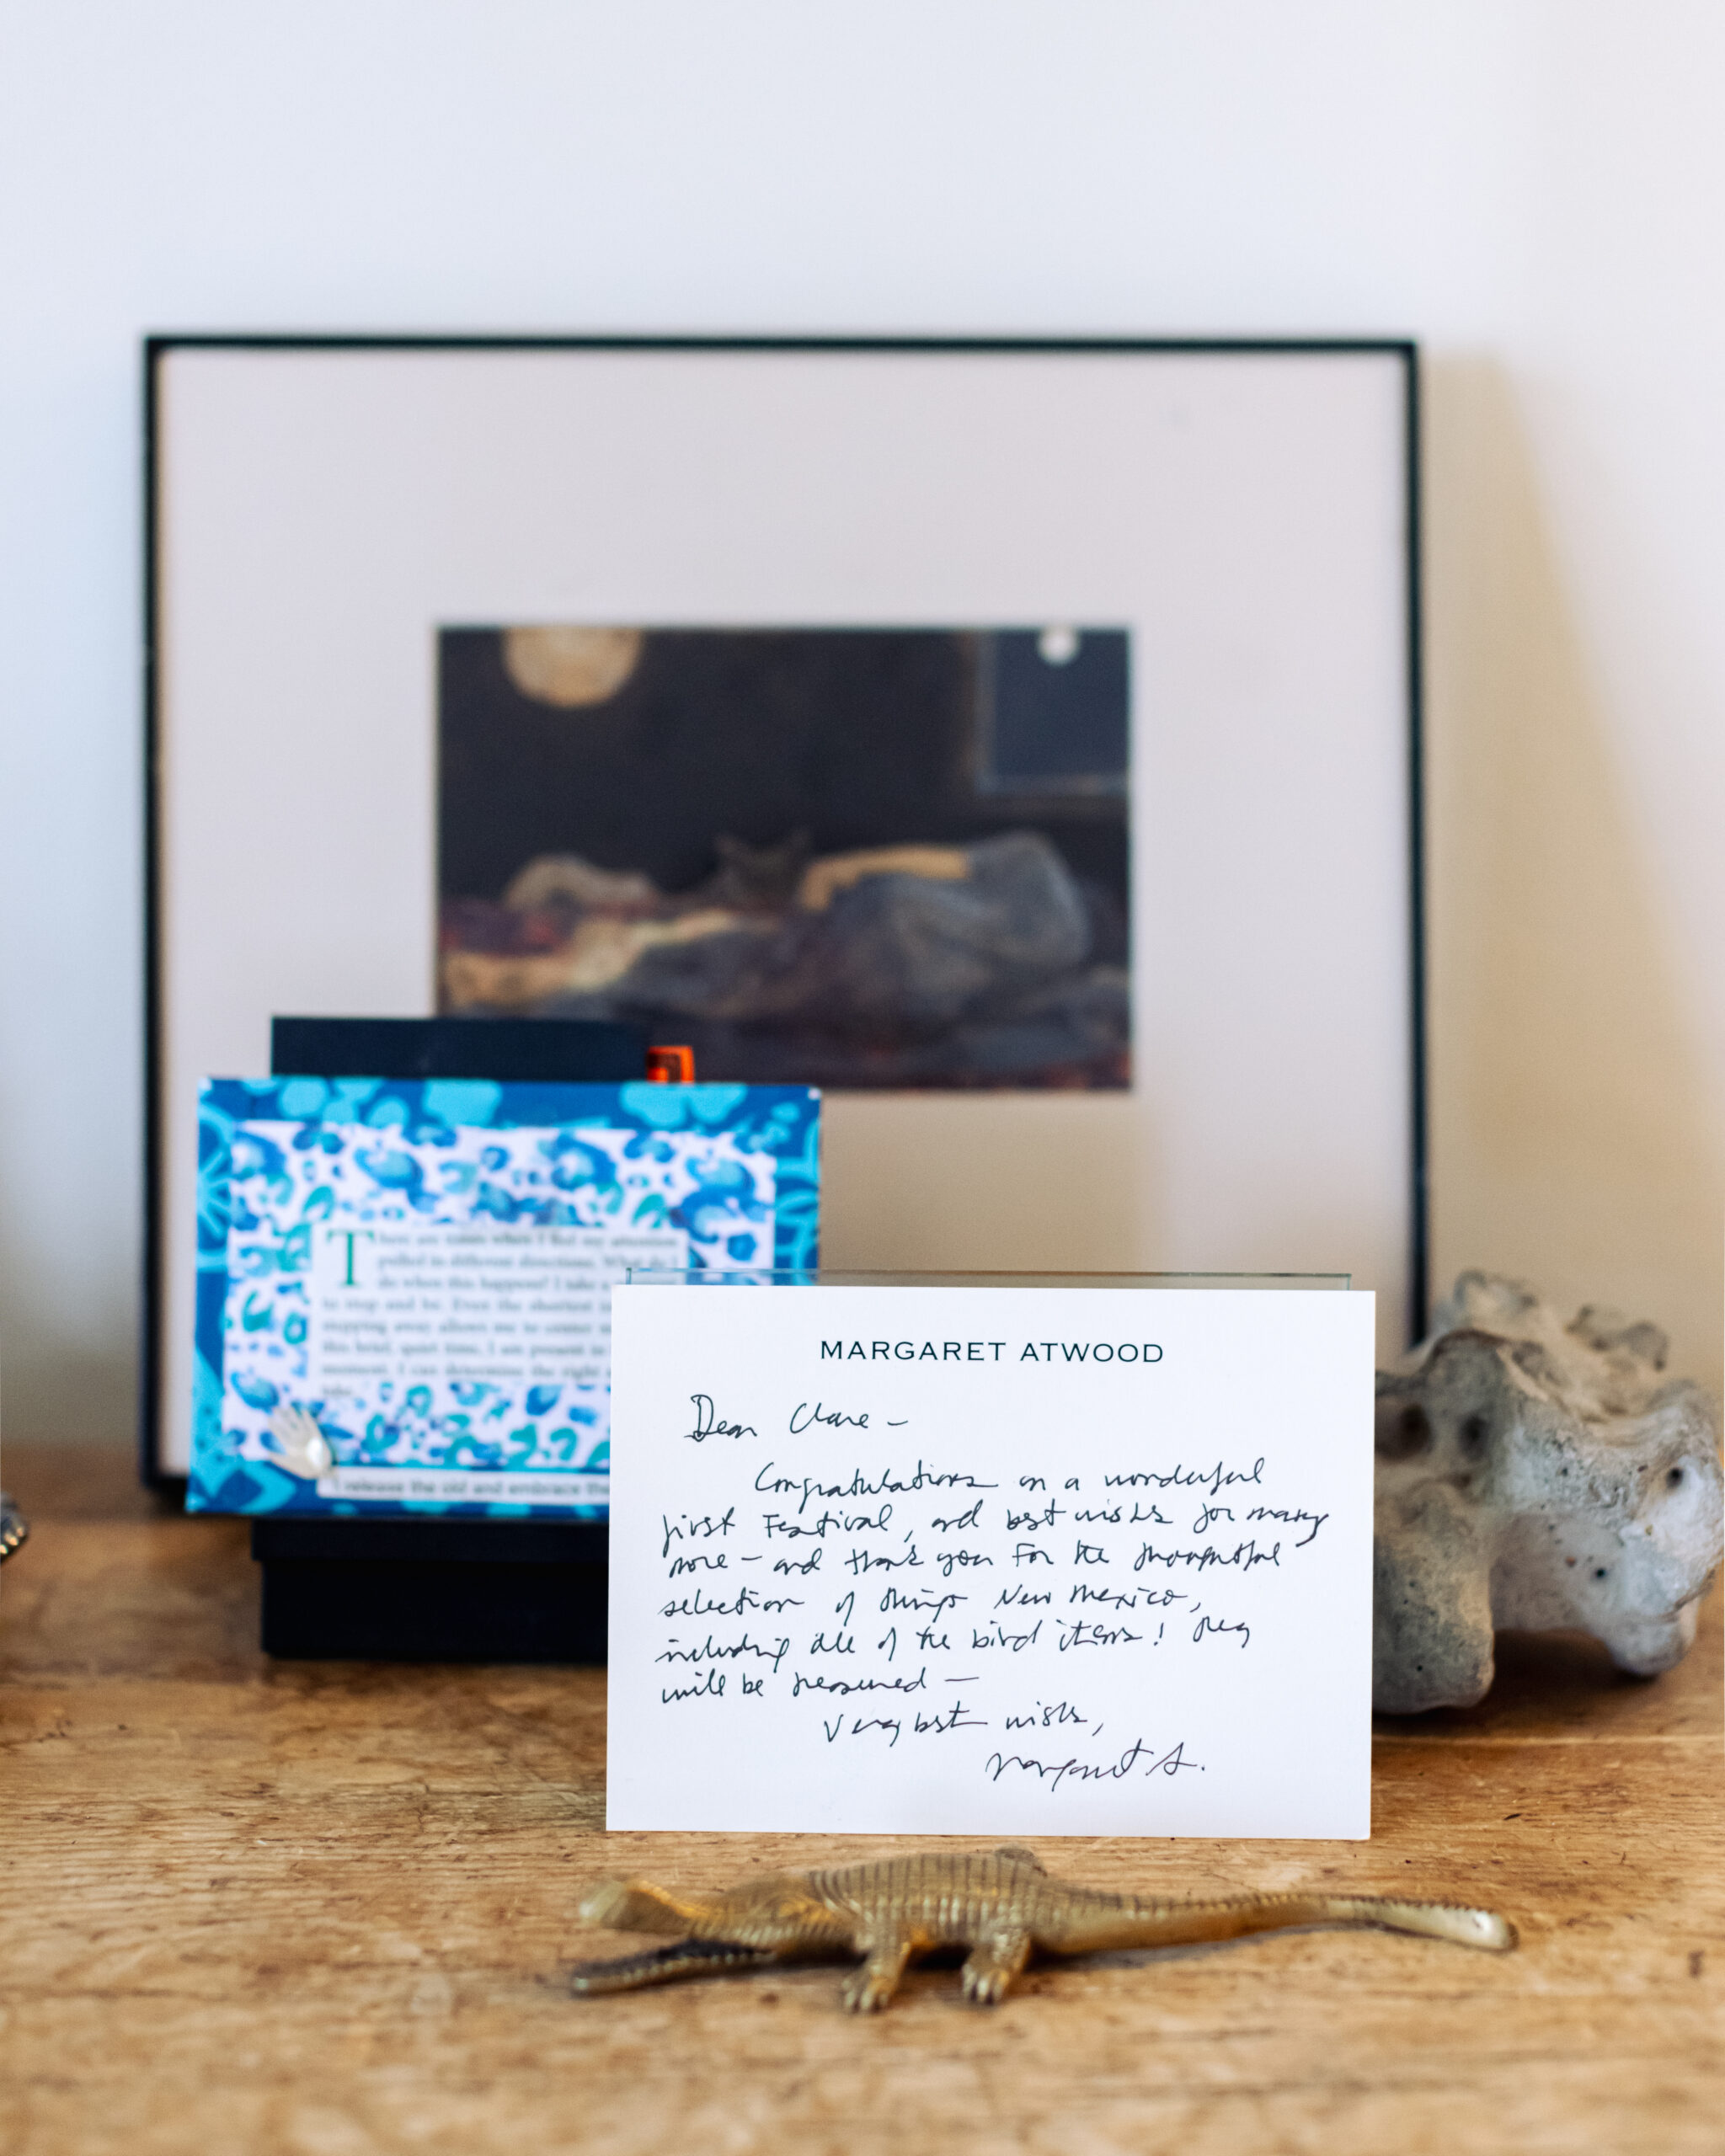 There are times when I feel my attention
pulled in different directions. What do I
do when this happens? I take a
to stop and be. Even the shortest
stepping away allows me to center
this brief, quiet time, I am present to
moment. I can determine the right
take.
I release the old and embrace the
MARGARET ATWOOD
Dear Clare –
Congratulations on a wonderful
first Festival, and best wishes for many
more – and thank you for the thoughtful
selection of things New Mexico,
including all of the bird items! They
will be treasured –
Very best wishes,
Margaret A.